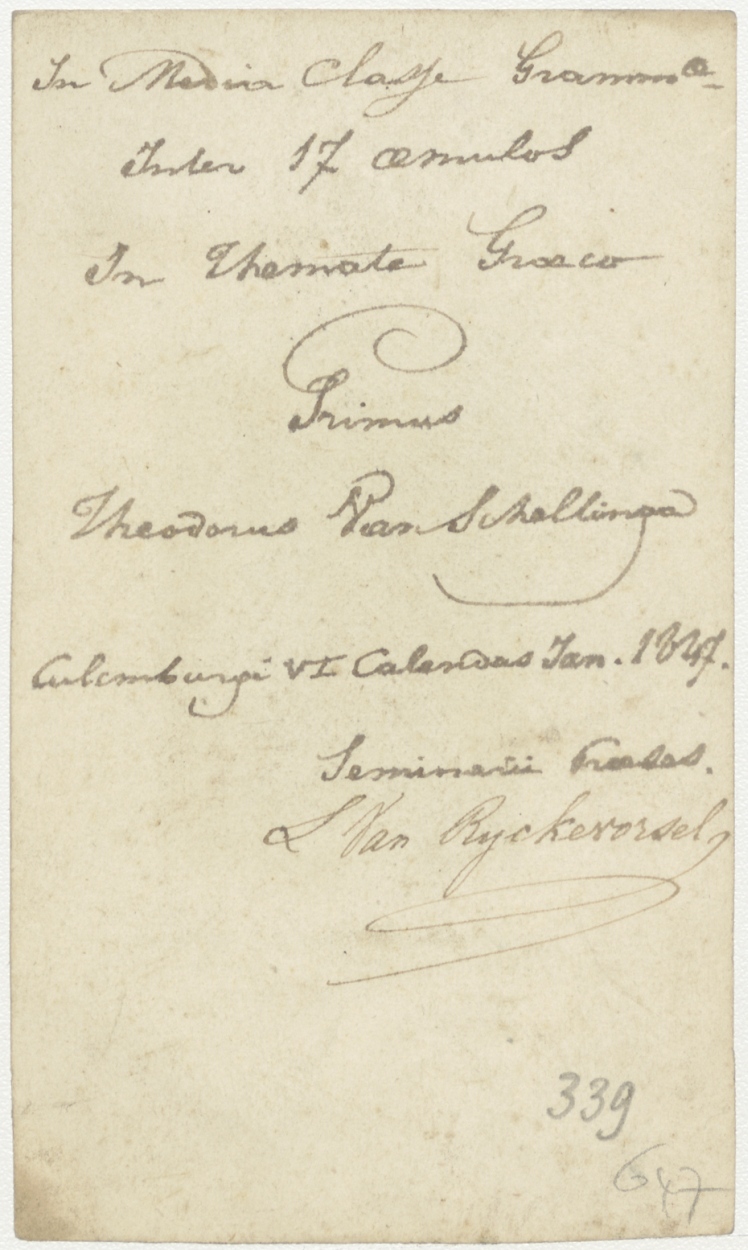 In Media Classe Gramm<sup>æ</sup>
Inter 17 æmulos
In Themate Græco
Primus
Theodorus Van Schellinga
Culemburgi VI Calendas Jan. 1847.
Seminarii Præses.
L Van Ryckevorsel
339
647